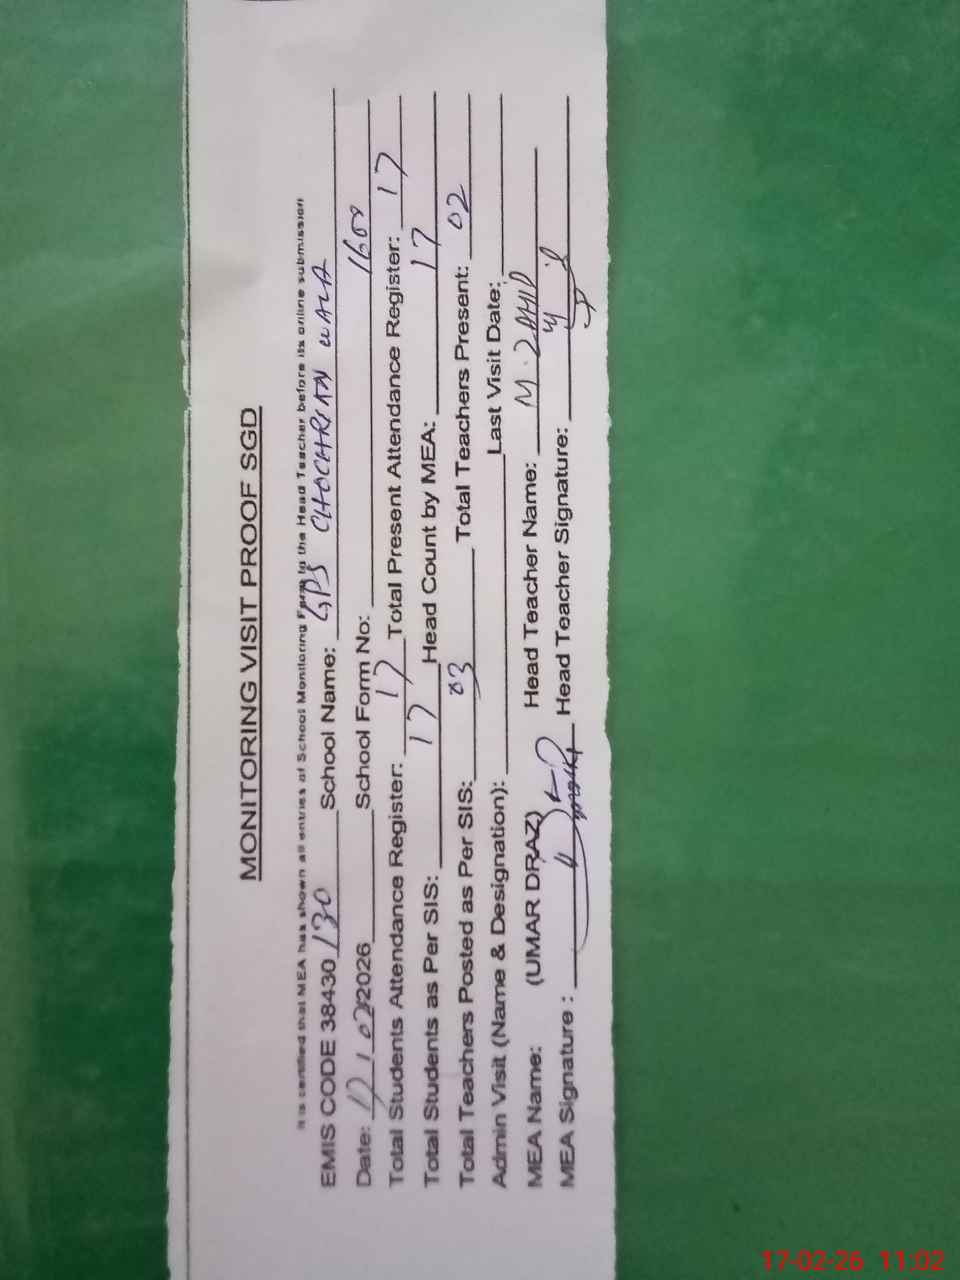 MONITORING VISIT PROOF SGD
It is certified that MEA has shown all entries of School Monitoring Form to the Head Teacher before its online submission
EMIS CODE 38430130 School Name: GPS CHOCHRIAN WALA
Date: 17/02/2026 School Form No: 1600
Total Students Attendance Register: 17 Total Present Attendance Register: 17
Total Students as Per SIS: 17 Head Count by MEA: 17
Total Teachers Posted as Per SIS: 03 Total Teachers Present: 02
Admin Visit (Name & Designation): Last Visit Date:
MEA Name: (UMAR DRAZ) Head Teacher Name: M. ZAHID
MEA Signature : Head Teacher Signature:
17-02-26 11:02